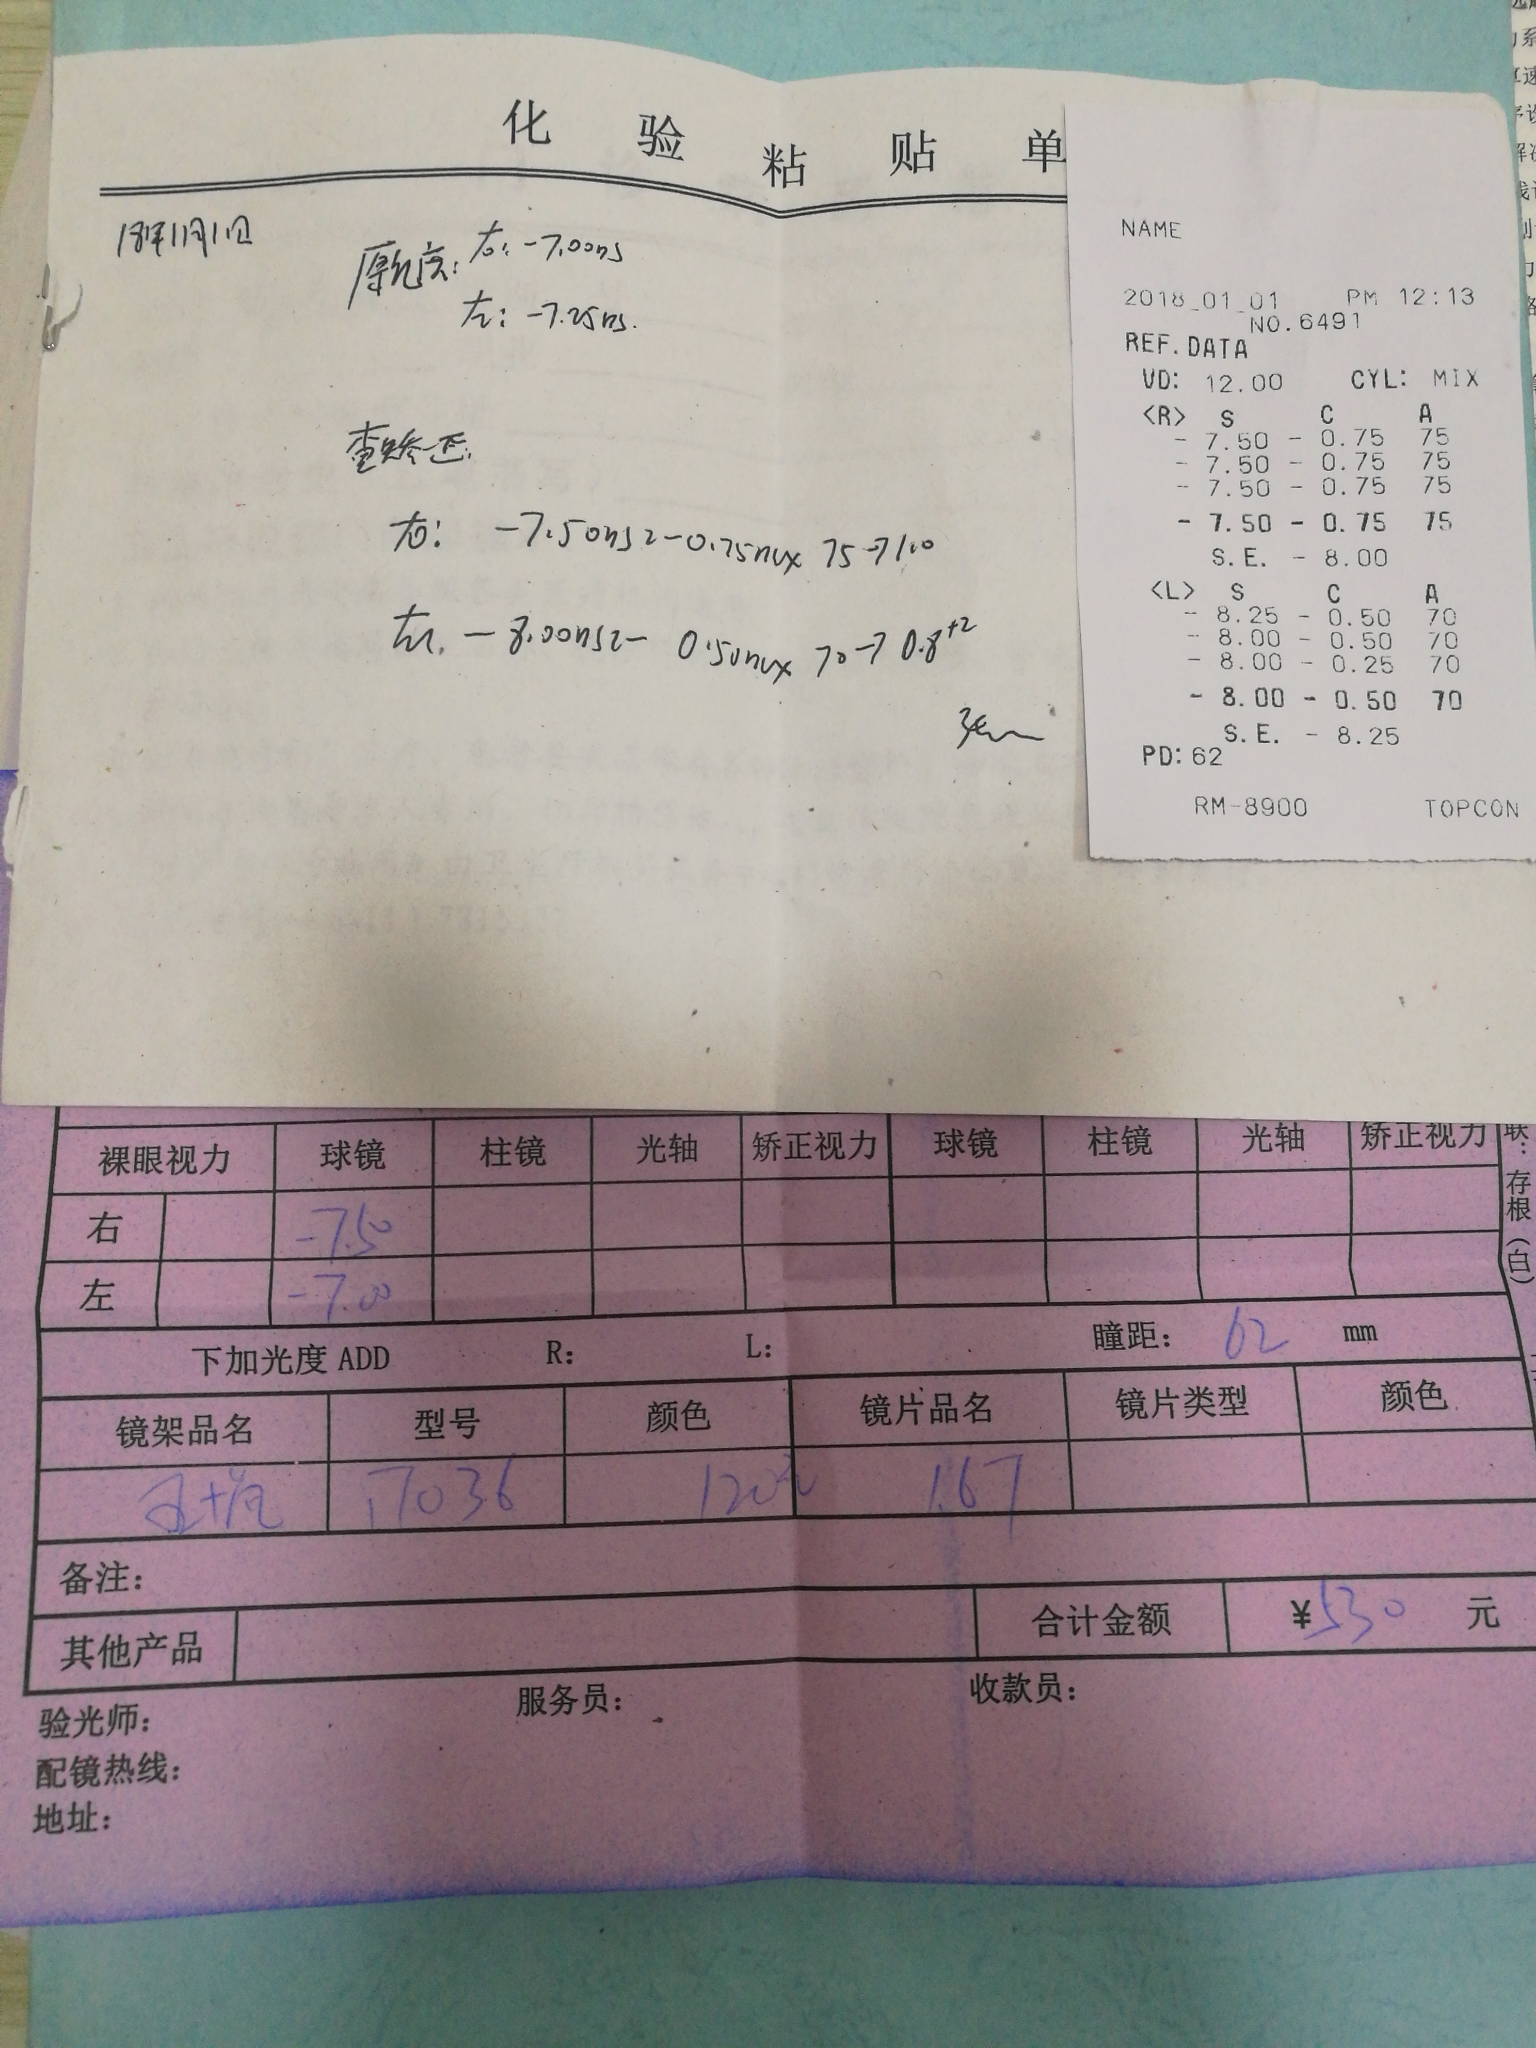 化验粘贴单
18年1月1日
原光度: 右: -7.00DS
左: -7.25DS.
查矫正:
右: -7.50DS -0.75DC× 75→1.0
左: -8.00DS - 0.50DC× 70→0.8⁺²
NAME
2018_01_01 PM 12:13
NO.6491
REF.DATA
VD: 12.00 CYL: MIX
<R> S C A
- 7.50 - 0.75 75
- 7.50 - 0.75 75
- 7.50 - 0.75 75
- 7.50 - 0.75 75
S.E. - 8.00
<L> S C A
- 8.25 - 0.50 70
- 8.00 - 0.50 70
- 8.00 - 0.25 70
- 8.00 - 0.50 70
S.E. - 8.25
PD: 62
RM-8900 TOPCON
裸眼视力 球镜 柱镜 光轴 矫正视力 球镜 柱镜 光轴 矫正视力
右 -7.50
左 -7.00
下加光度 ADD R: L: 瞳距: 62 mm
镜架品名 型号 颜色 镜片品名 镜片类型 颜色
17036 1.67
备注:
其他产品 合计金额 ¥530 元
验光师: 服务员: 收款员:
配镜热线:
地址:
联: 存根(白)